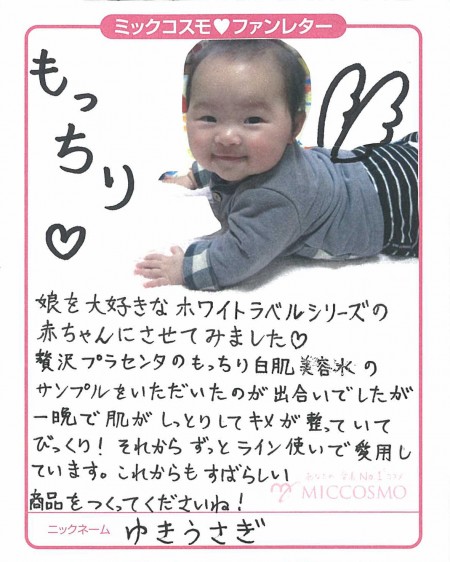 ミックコスモ♥ファンレター
もっちり♡
娘を大好きなホワイトラベルシリーズの
赤ちゃんにさせてみました♡
贅沢プラセンタのもっちり白肌美容水の
サンプルをいただいたのが出合いでしたが
一晩で肌がしっとりしてキメが整っていて
びっくり！それからずっとライン使いで愛用し
ています。これからもすばらしい
商品をつくってくださいね！
MICCOSMO
ニックネーム ゆきうさぎ